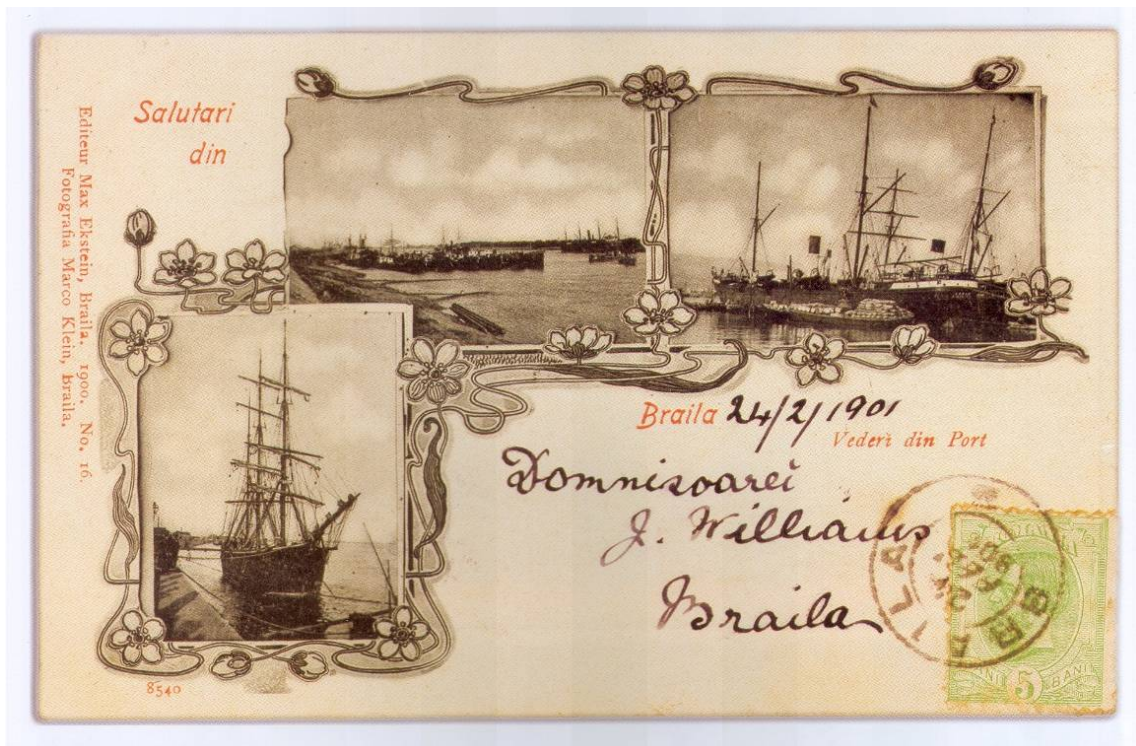 Salutari
din
Editeur Max Ekstein, Braila. 1900. No. 16.
Fotografia Marco Klein, Braila.
Braila 24/2/1901
Vederi din Port
Domnisoarei
J. Williams
Braila
BRAILA
5
BANI
8540